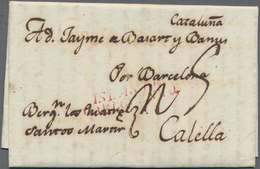 Cataluña
A d. Jayme a Basart y Banus
Por Barcelona
Berg.n los
Santos Martir
Calella